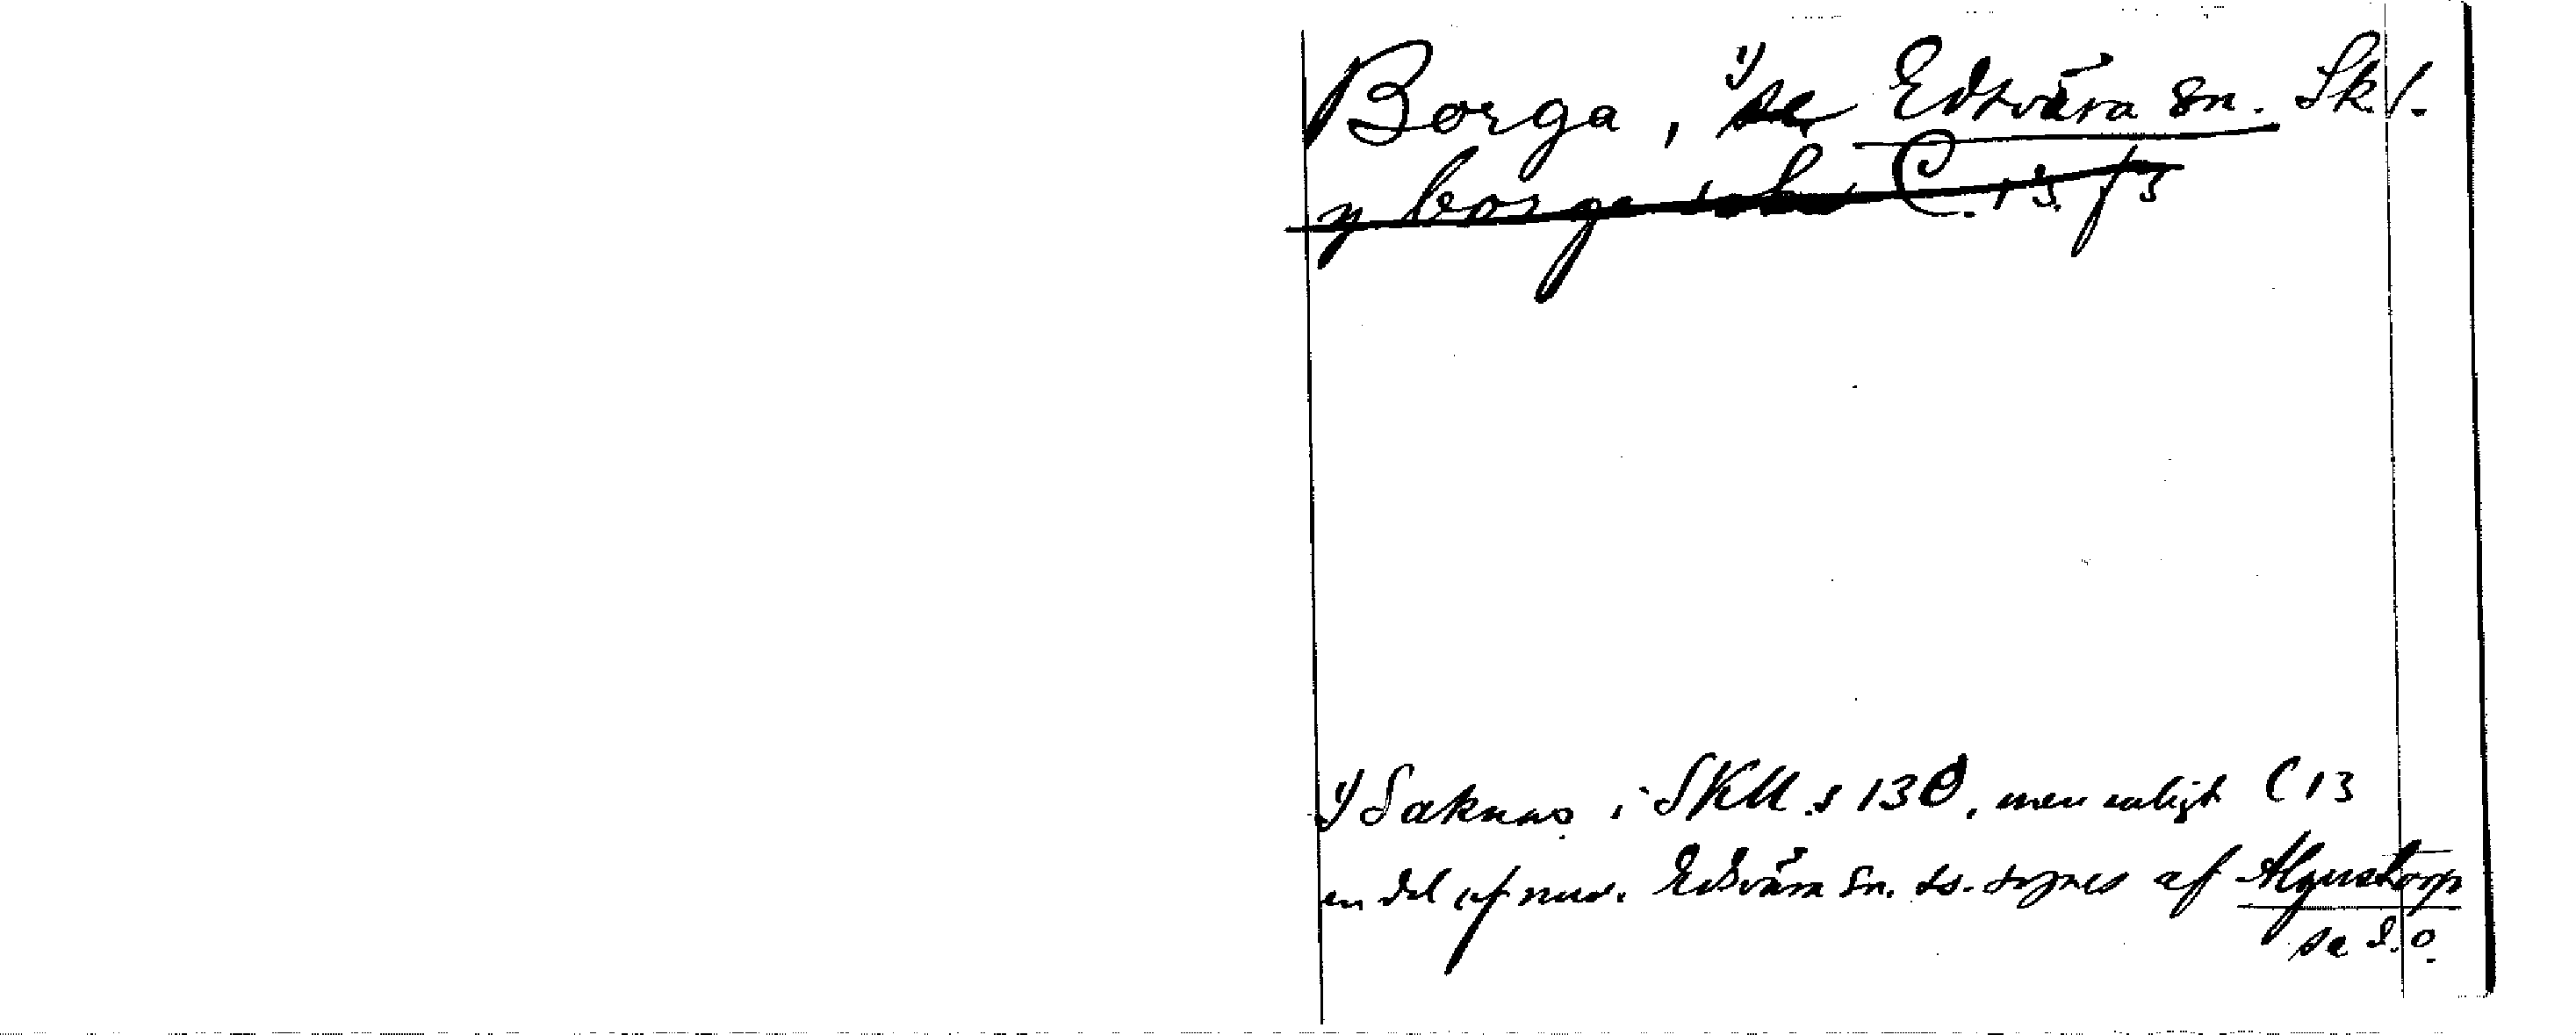 Borga, 1) se Edsvära sn. Skl.
y borge C. 13. f 3
1) Saknas i SKU s 130, men enligt C 13
en del af nuv. Edsvära sn. ds. synes af Algustorp
se d.o.